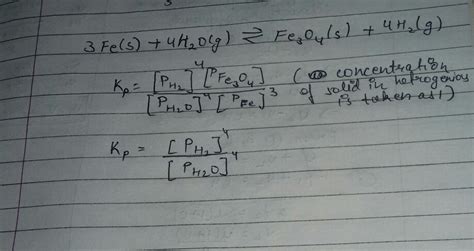 3Fe(s) + 4H₂O(g) ⇌ Fe₃O₄(s) + 4H₂(g)
Kp = [P_H₂]⁴ [P_Fe₃O₄] / [P_H₂O]⁴ [P_Fe]³ ( concentration
of solid in hetrogenius
is taken as 1)
Kp = [P_H₂]⁴ / [P_H₂O]⁴